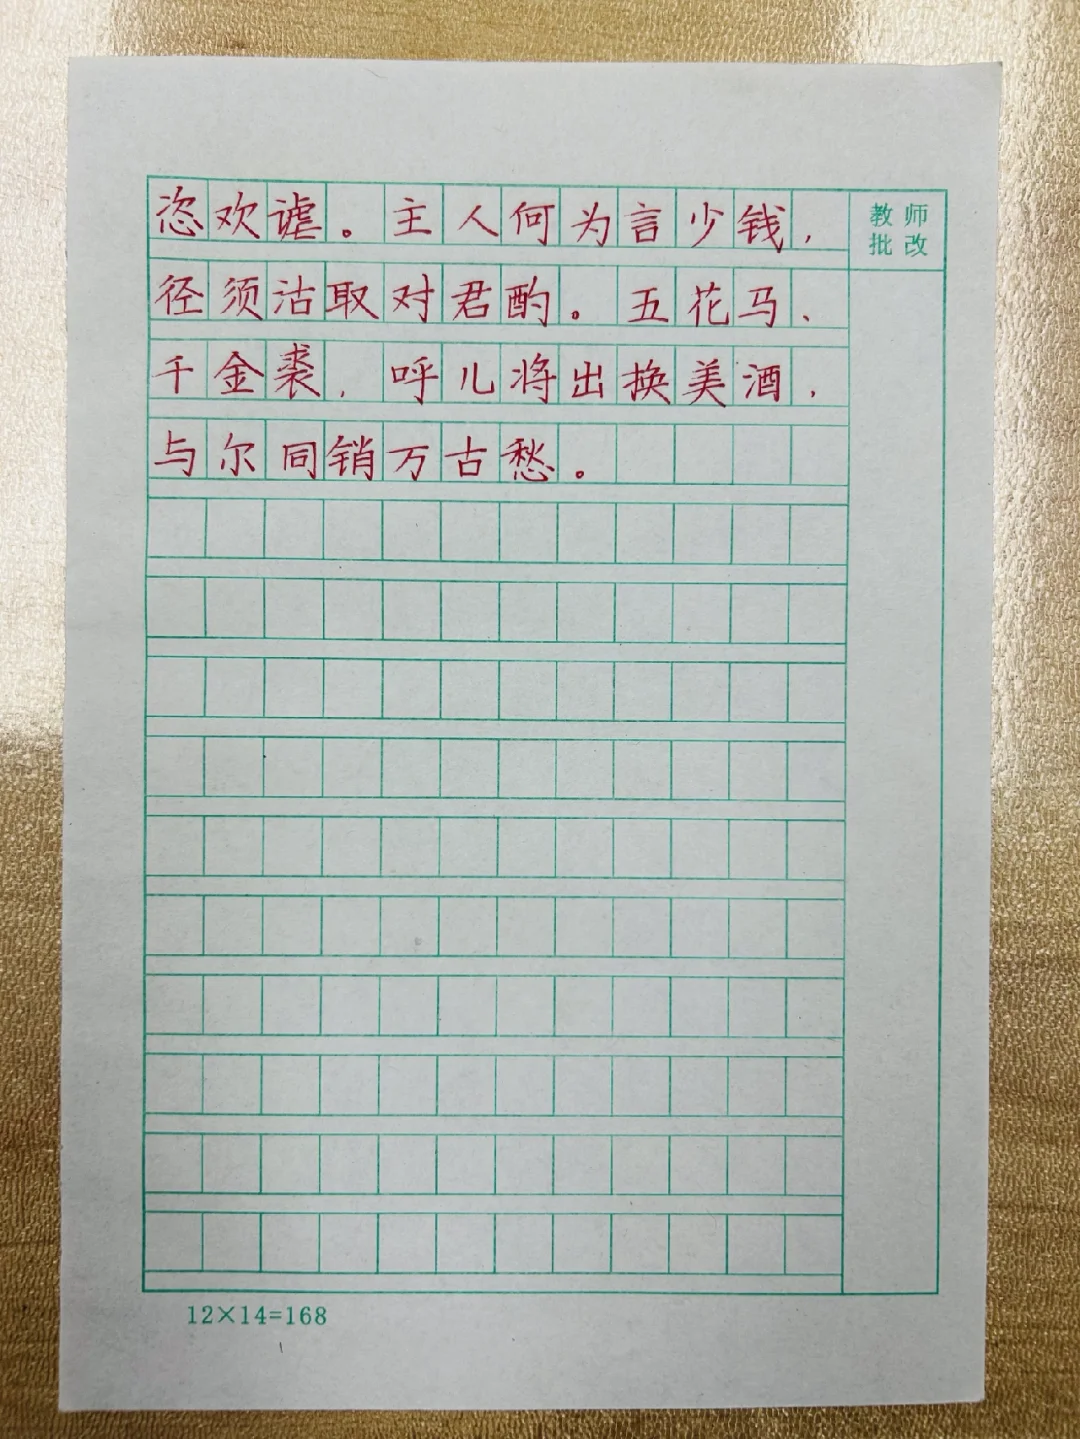 恣欢谑。主人何为言少钱，
教师
批改
径须沽取对君酌。五花马、
千金裘，呼儿将出换美酒，
与尔同销万古愁。
12×14=168